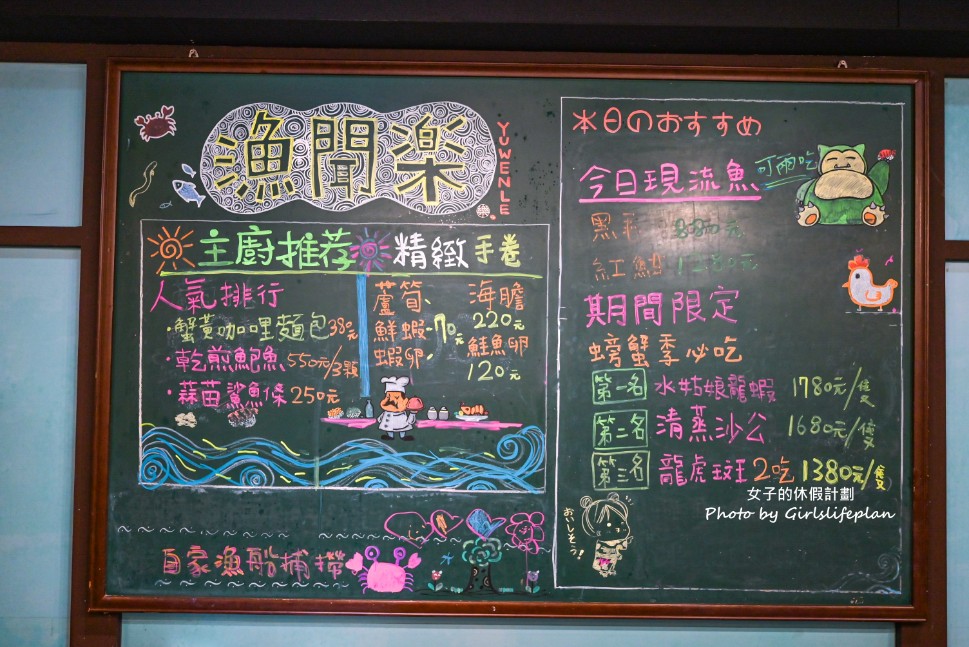 漁聞楽
YUWENLE
主廚推荐 精緻手卷
人氣排行
·蟹黃咖哩麵包38元
·乾煎鮑魚550元/3顆
·蒜苗鯊魚條250元
蘆筍、
鮮蝦-70元
蝦卵、
海膽
220元
鮭魚卵
120元
自家漁船捕撈
本日のおすすめ
今日現流魚 可兩吃
黑 880元
紅 1280元
期間限定
螃蟹季必吃
第一名 水姑娘龍蝦 1780元/隻
第二名 清蒸沙公 1680元/隻
第三名 龍虎斑 2吃 1380元/隻
おいしそう!
女子的休假計劃
Photo by Girlslifeplan